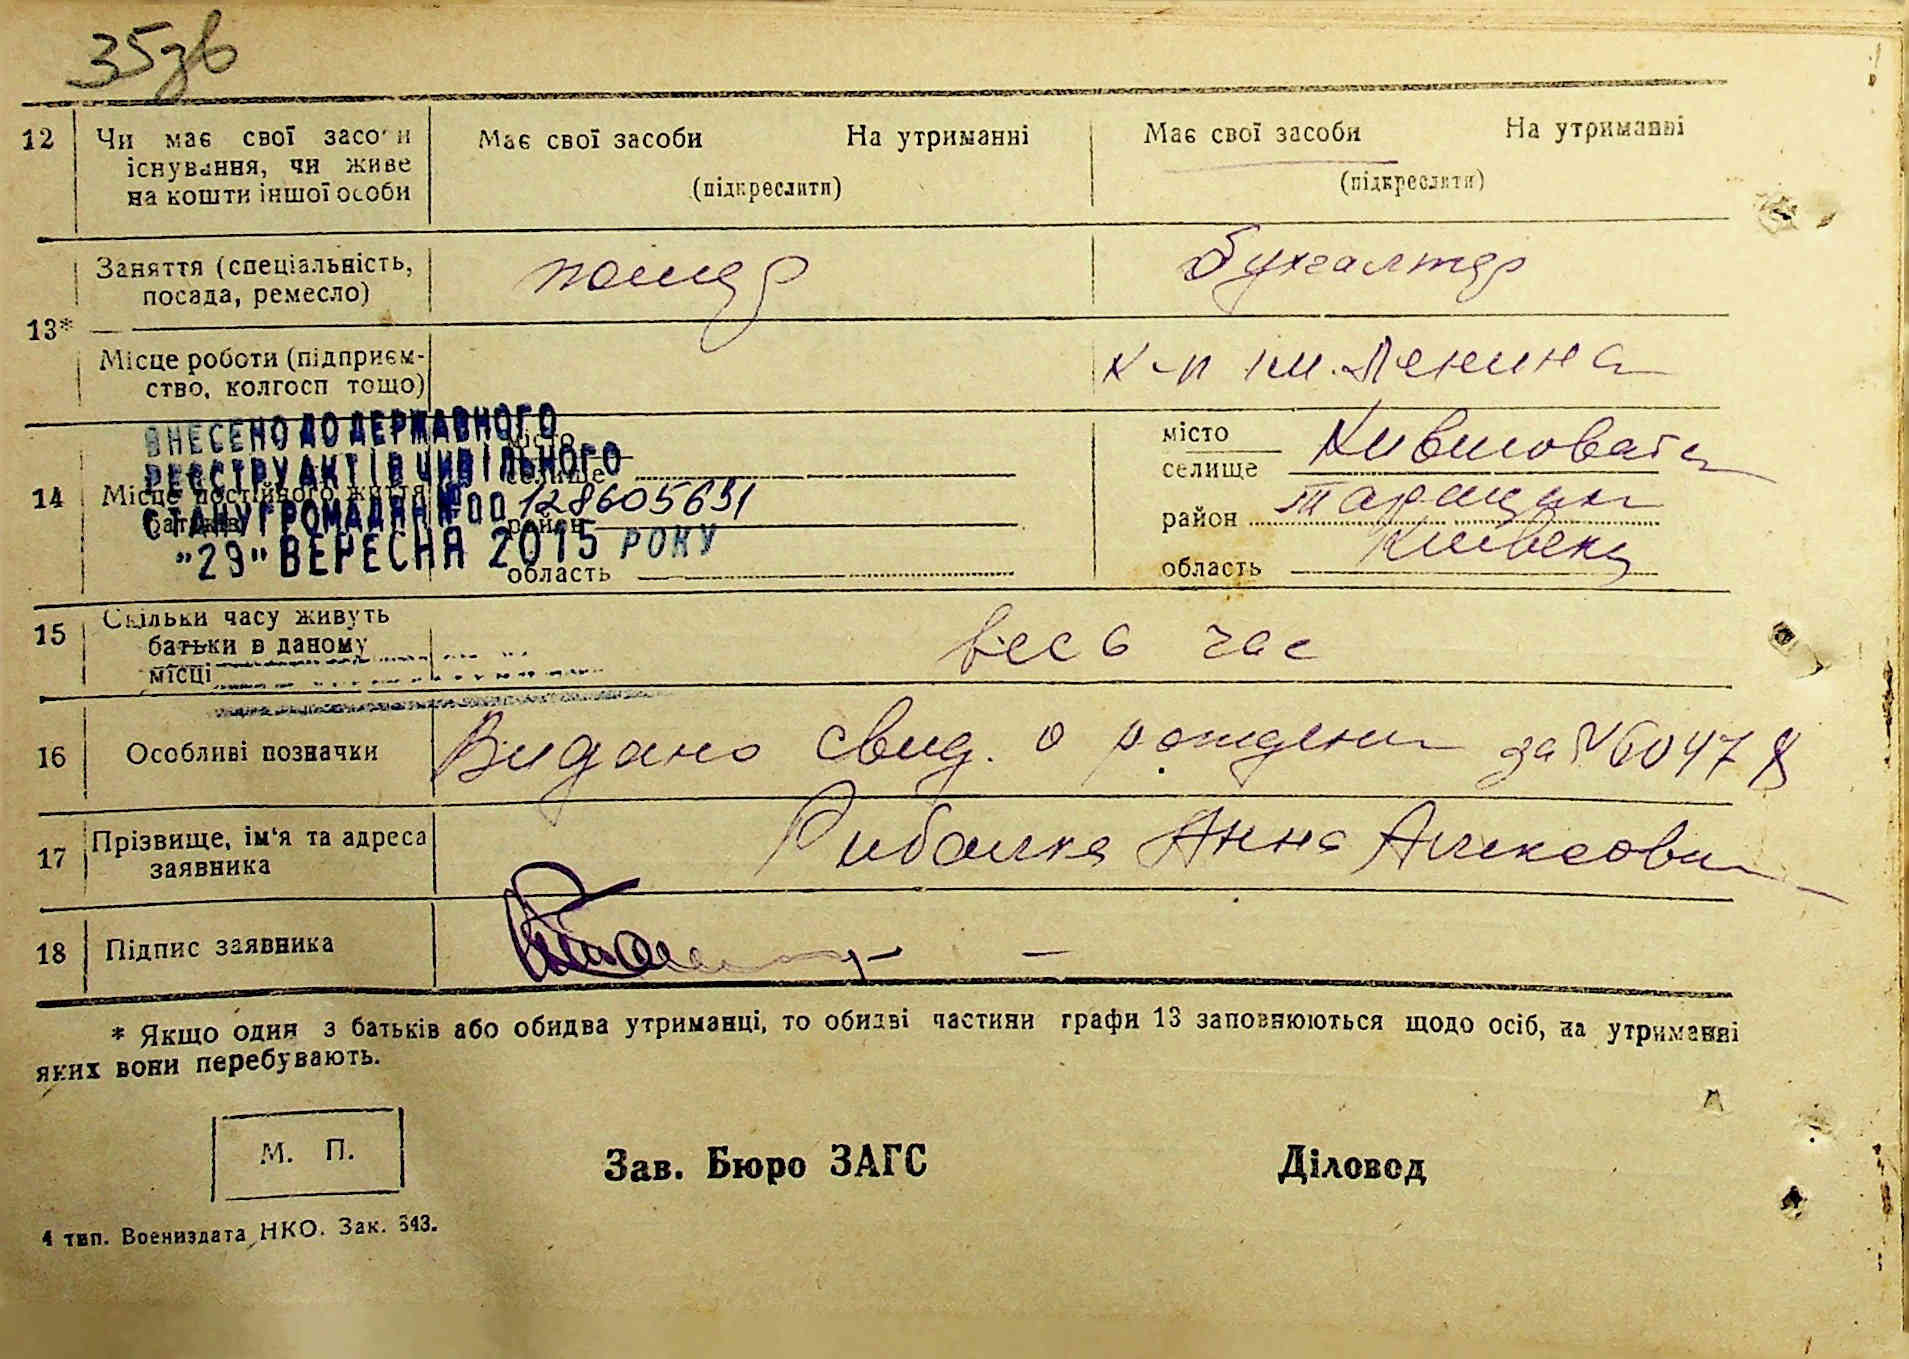 35зв
12 Чи має свої засоби Має свої засоби На утриманні Має свої засоби На утриманні
існування, чи живе
на кошти іншої особи (підкреслити) (підкреслити)
Заняття (спеціальність, помер бухгалтер
посада, ремесло)
13*
Місце роботи (підприєм- к-п им. Ленина
ство, колгосп тощо)
ВНЕСЕНО ДО ДЕРЖАВНОГО
РЕЄСТРУ АКТІВ ЦИВІЛЬНОГО
СТАНУ ГРОМАДЯН №00128605651
"29" ВЕРЕСНЯ 2015 РОКУ
14 Місце постійного життя
батьків
місто
селище
район
область
місто
селище
район Таращан
область Київск
15 Скільки часу живуть
батьки в даному весь час
місці
16 Особливі позначки Видано свид. о рождении за №60478
17 Прізвище, ім'я та адреса Рибалка Анна Алексеовн
заявника
18 Підпис заявника
* Якщо один з батьків або обидва утриманці, то обидві частини графи 13 заповнюються щодо осіб, на утриманні
яких вони перебувають.
М. П.
Зав. Бюро ЗАГС Діловод
4 тип. Воениздата НКО. Зак. 643.